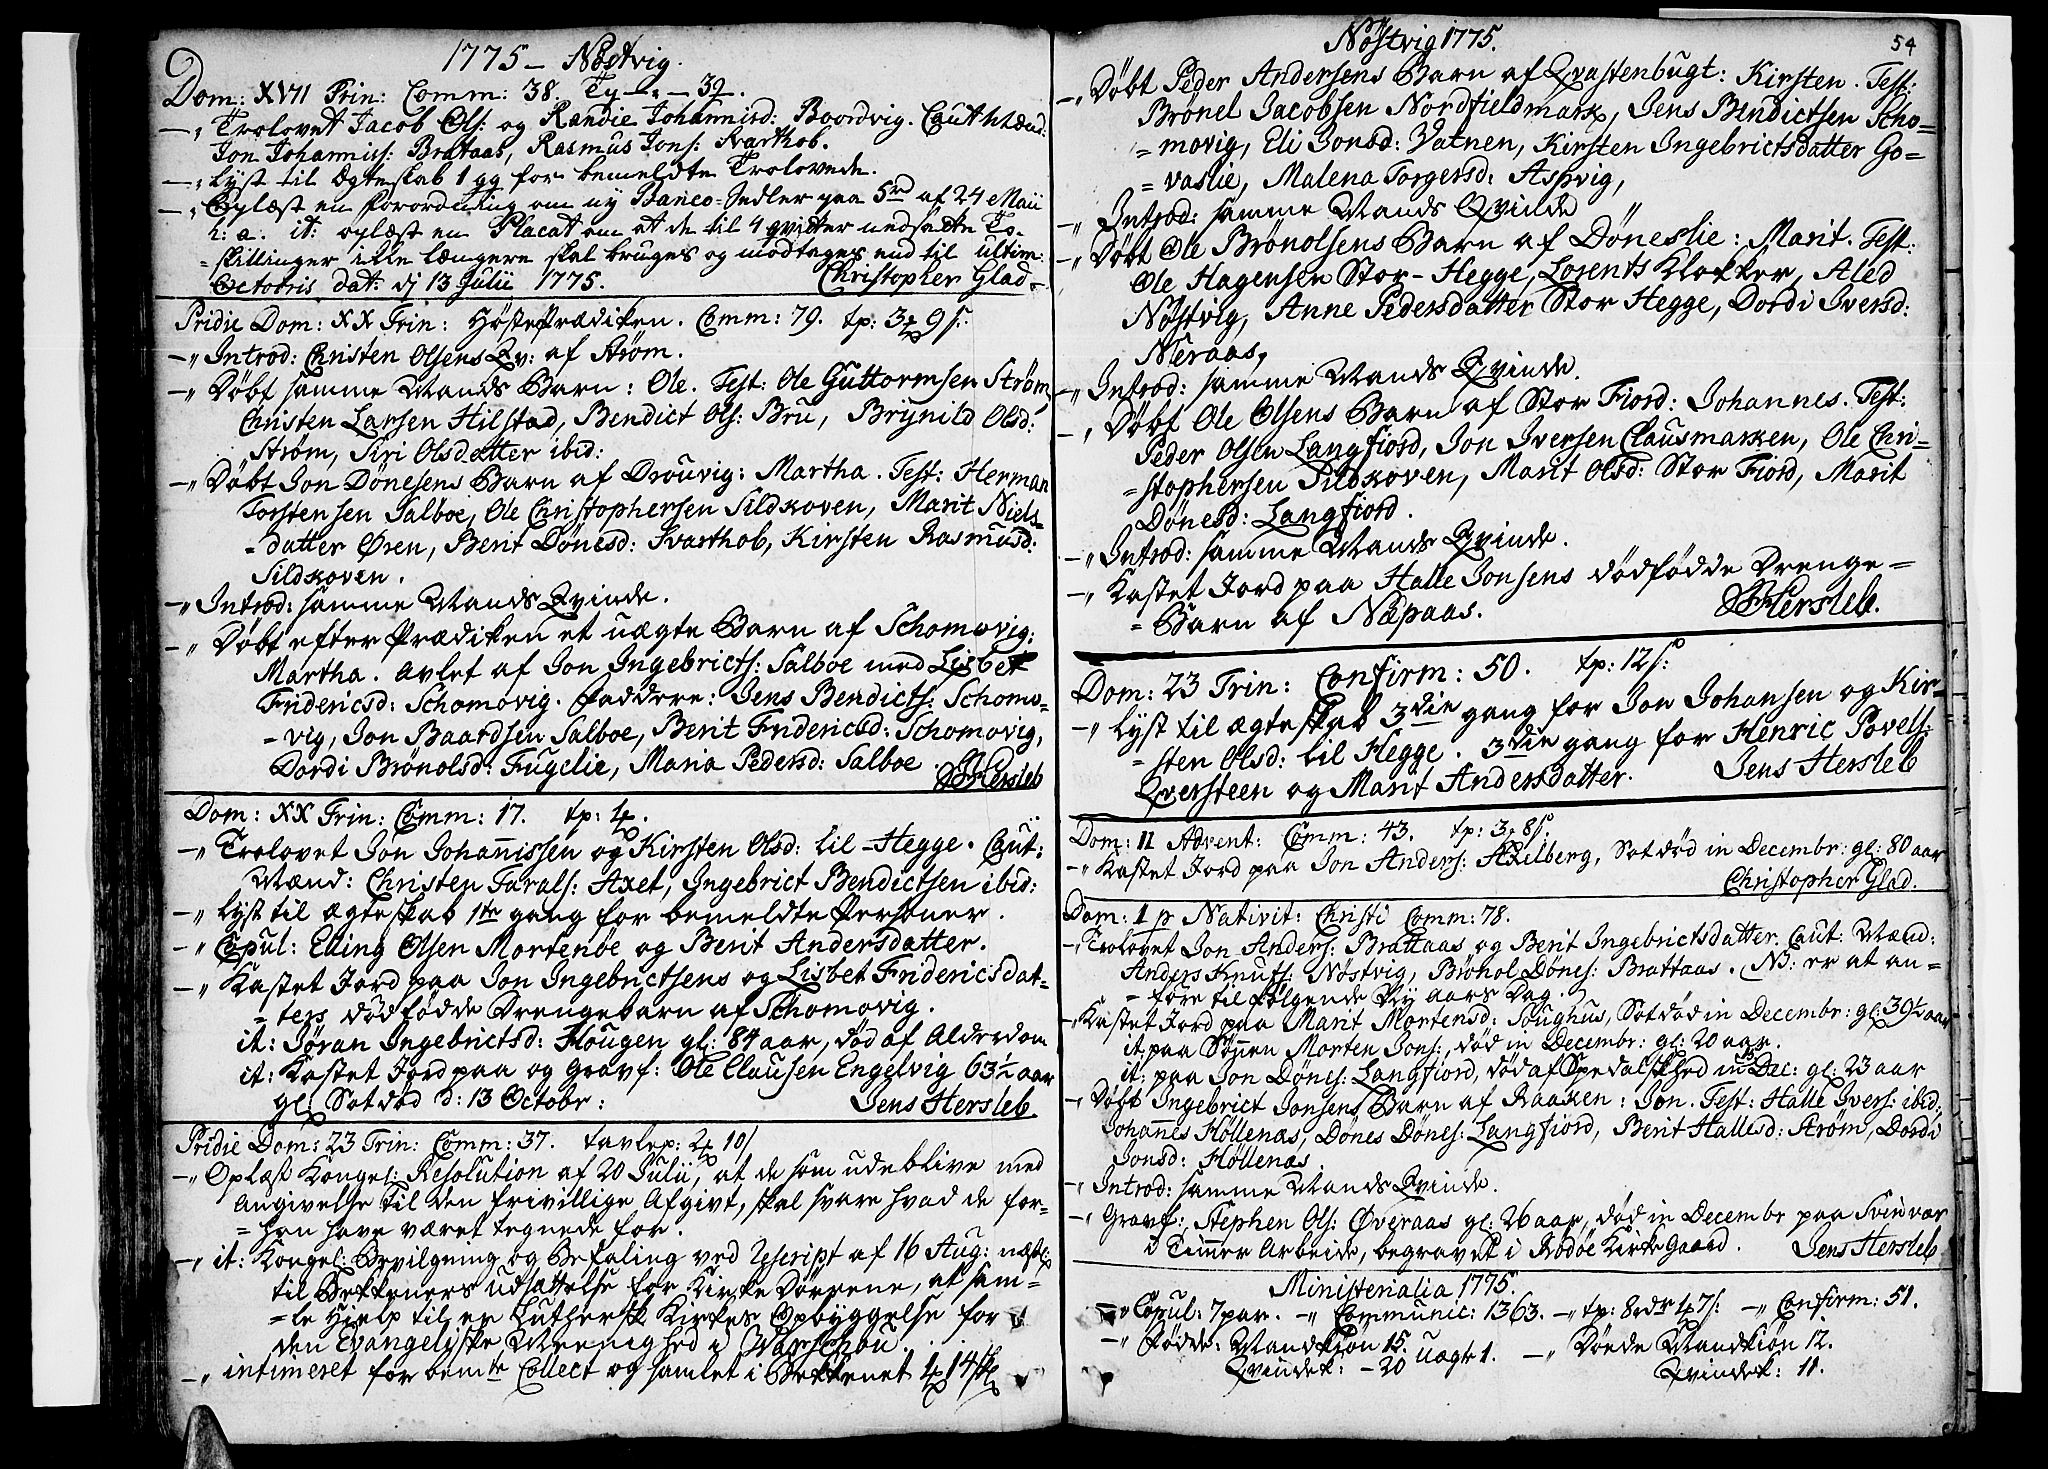 1775 – Nöstvig.
Dom: XVII Trin: Comm: 38. Tp – " – 39.
–" Trolovet Jacob Ols: og Randie Johannisd: Boordvig. Caut Mænd:
Jon Johanniss: Brataas, Rasmus Jons: Svarthob.
–" Lyst til Ægteskab 1 gg for bemeldte Trolovede.
–" Oplæst en Forordning om ny Banco-Sedler paa 5rd af 24 Maii
h: a. it: oplæst en Placat om at de til 4 qvitter nedsatte To-
=skillinger ikke længere skal bruges og modtages end til ultim:
Octobris, dat: dj 13 Julii 1775. Christopher Glad.
Pridie Dom: XX Trin: HøstePrædiken. Comm: 79. tp: 3 9 s:
–" Introd: Christen Olsens Qv: af Strøm.
–" Döbt samme Mands Barn: Ole. Test: Ole Guttormsen Strøm,
Christen Larsen Hilstad, Bendict Ols: Bru, Brynild Olsd:
Strøm, Siri Olsdatter ibid:
–" Döbt Jon Dönesens Barn af Drouvig: Martha. Test: Herman
Torstensen Salboe, Ole Christophersen Sildkoven, Marit Niels-
=datter Øren, Berit Dönesd: Svarthob, Kirsten Rasmusd:
Sildkoven.
–" Introd: samme Mands Qvinde.
–" Döbt efter Prædiken et uægte Barn af Schomovig:
Martha. Avlet af Jon Ingebricts: Salboe med Lisbet
Fridericsd: Schomovig. Faddere: Jens Bendicts: Schomo-
=vig, Jon Baardsen Salboe, Berit Fridericsd: Schomovig,
Dordi Brönolsd: Fuglie, Maria Pedersd: Salboe. JHersleb
Dom: XX Trin: Comm: 17. tp: 1
–" Trolovet Jon Johannissen og Kirsten Olsd: lil-Hegge. Caut:
Mænd: Christen Tarals: Axet, Ingebrict Bendictsen ibid:
–" Lyst til Ægteskab 1ste gang for bemeldte Personer.
–" Copul: Elling Olsen Mortenöe og Berit Andersdatter.
–" Kastet Jord paa Jon Ingebrictsens og Lisbet Fridericsdat-
=ters dödfödde Drengebarn af Schomovig.
it: Jöran Ingebrictsd: Hougen gl: 84 aar, död af Alderdom
it: Kastet Jord paa og Gravf: Ole Clausen Engelvig 63½ aar
gl: Sotdöd d: 13 Octobr: Jens Hersleb
Pridie Dom: 23 Trin: Comm: 37. tavlep: 2 10 s
–" Oplæst Kongel: Resolution af 20 Julii, at de som udeblive med
Angivelse til den frivillige Afgivt, skal svare hvad de for-
=hen have været tegnede for.
–" it: Kongel: Bevilgning og Befaling ved Rescript af 16 Aug: næstl:
til Bekkeners udsættelse for Kirke Dörrene, at sam-
=le Hielp til en Luthersk Kirkes Opbyggelse for
den Evangeliske Meenighed i Warschou.
–" intimeret for bemte Collect og samlet i Bekkenet 1 14 s
Nöstvig 1775. 54
–" Döbt Peder Andersens Barn af Qvastenbugt: Kirsten. Test:
Brönel Jacobsen Nordfieldmark, Jens Bendictsen Scho-
=movig, Eli Jonsd: Vatnen, Kirsten Ingebrictsdatter Go-
=vaslie, Malena Torgersd: Aspvig,
–" Introd: samme Mands Qvinde
–" Döbt Ole Brönolsens Barn af Döneslie: Marit. Test:
Ole Hagensen Stor-Hegge, Lorents Klokker, Aled
Nöstvig, Anne Pedersdatter Stor Hegge, Dordi Iversd:
Neraas,
–" Introd: samme Mands Qvinde.
–" Döbt Ole Olsens Barn af Stor Fiord: Johannes. Test:
Peder Olsen Langfiord, Jon Iversen Clausmarken, Ole Chri-
=stophersen Sildkoven, Marit Olsd: Stor Fiord, Marit
Dönesd: Langfiord.
–" Introd: samme Mands Qvinde.
–" Kastet Jord paa Halle Jonsens dödfödde Drenge-
=Barn af Næpaas. JHersleb.
Dom: 23 Trin: Confirm: 50. tp: 12 s:
–" Lyst til Ægteskab 3die gang for Jon Johansen og Kir-
=sten Olsd: lil Hegge. 3die gang for Henric Povels:
Qversteen og Marit Andersdatter. Jens Hersleb
Dom: II Advent: Comm: 43. tp: 3 8 s:
–" Kastet Jord paa Jon Anders: Axelberg, Sotdöd in Decembr: gl: 80 aar
Christopher Glad.
Dom: 1 p Nativit: Christi Comm: 78.
–" Trolovet Jon Anders: Brattaas og Berit Ingebrictsdatter. Caut: Mænd:
Anders Knuts: Nöstvig, Bröhol Dönes: Brattaas. NB: er at an-
=före til fölgende Ny Aars Dag.
–" Kastet Jord paa Marit Mortensd: Soughus, Sotdöd in Decembr: gl: 39½ aar
it: paa Sönnen Morten Jons:, död in Decembr: gl: 20 aar.
it: paa Jon Dönes: Langfiord, död af Spedalskhed in Dec: gl: 23 aar
–" Döbt Ingebrict Jonsens Barn af Raaken: Jon. Test: Halle Ivers: ibid:
Johannes Höllenæs, Dönes Dönes: Langfiord, Berit Hallesd: Strøm, Dordi
Jonsd: Höllenæs
–" Introd: samme Mands Qvinde.
–" Gravf: Stephen Ols: Øveraas gl: 26 aar, död in Decembr paa Svinvær
i Timmer Arbeide, begravet i Rödöe Kirke Gaard. Jens Hersleb
Ministerialia 1775.
–" Copul: 7 par. –" Communic: 1363. –" tp: 8rdr 1 7 s: –" Confirm: 51.
–" Födde: Mandkiön 15. Uægte 1. –" Döede Mandkiön 12.
Qvindek: – 20 Qvindek: 11.